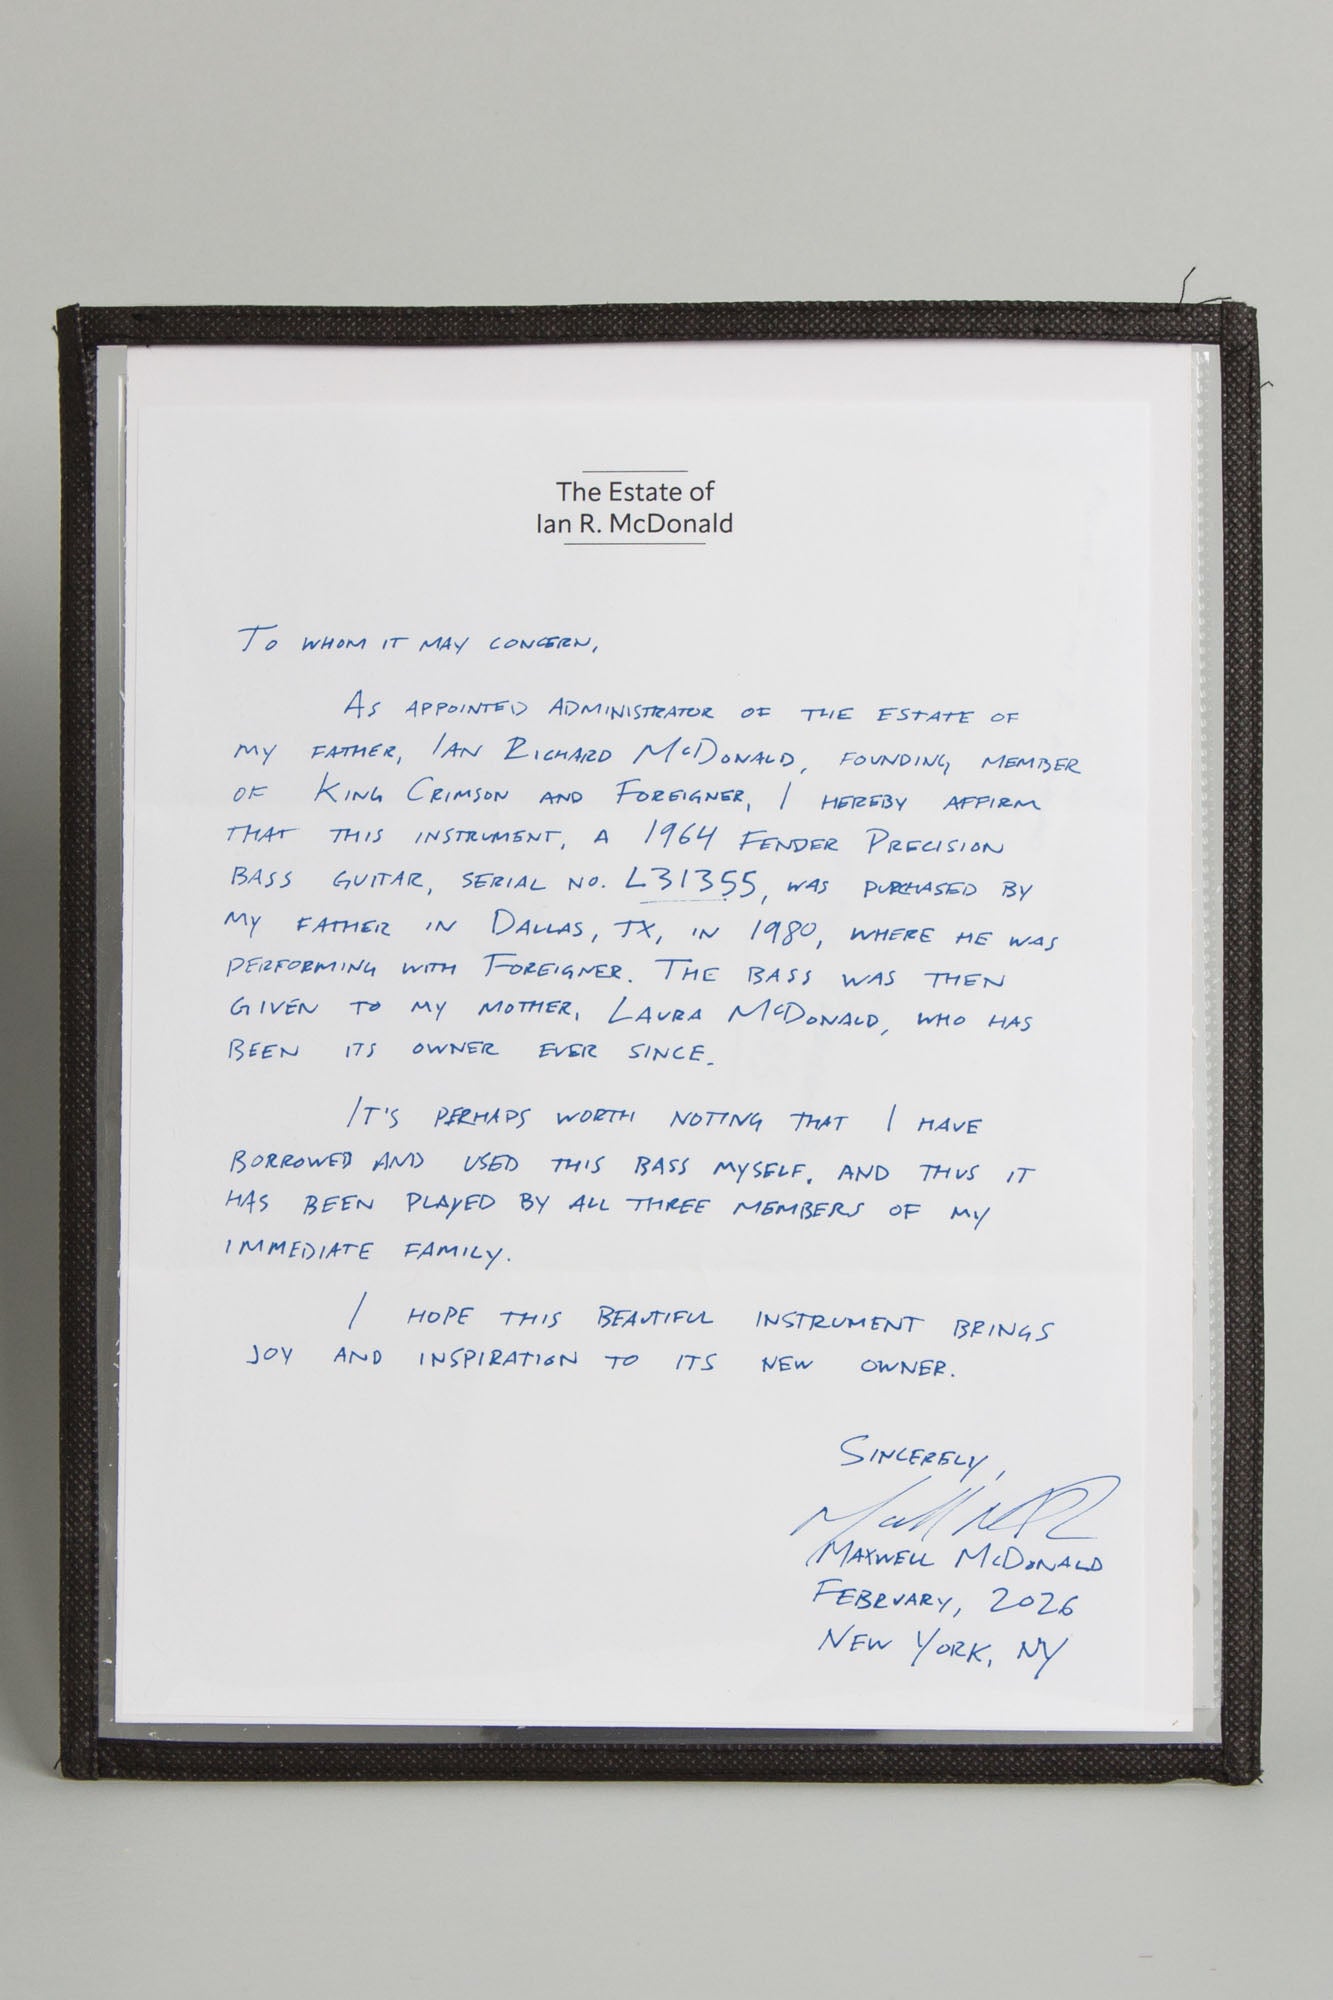 The Estate of
Ian R. McDonald
To whom it may concern,
As appointed administrator of the estate of
my father, Ian Richard McDonald, founding member
of King Crimson and Foreigner, I hereby affirm
that this instrument, a 1964 Fender Precision
bass guitar, serial no. L31355, was purchased by
my father in Dallas, TX, in 1980, where he was
performing with Foreigner. The bass was then
given to my mother, Laura McDonald, who has
been its owner ever since.
It's perhaps worth noting that I have
borrowed and used this bass myself, and thus it
has been played by all three members of my
immediate family.
I hope this beautiful instrument brings
joy and inspiration to its new owner.
Sincerely,
Maxwell McDonald
February, 2026
New York, NY